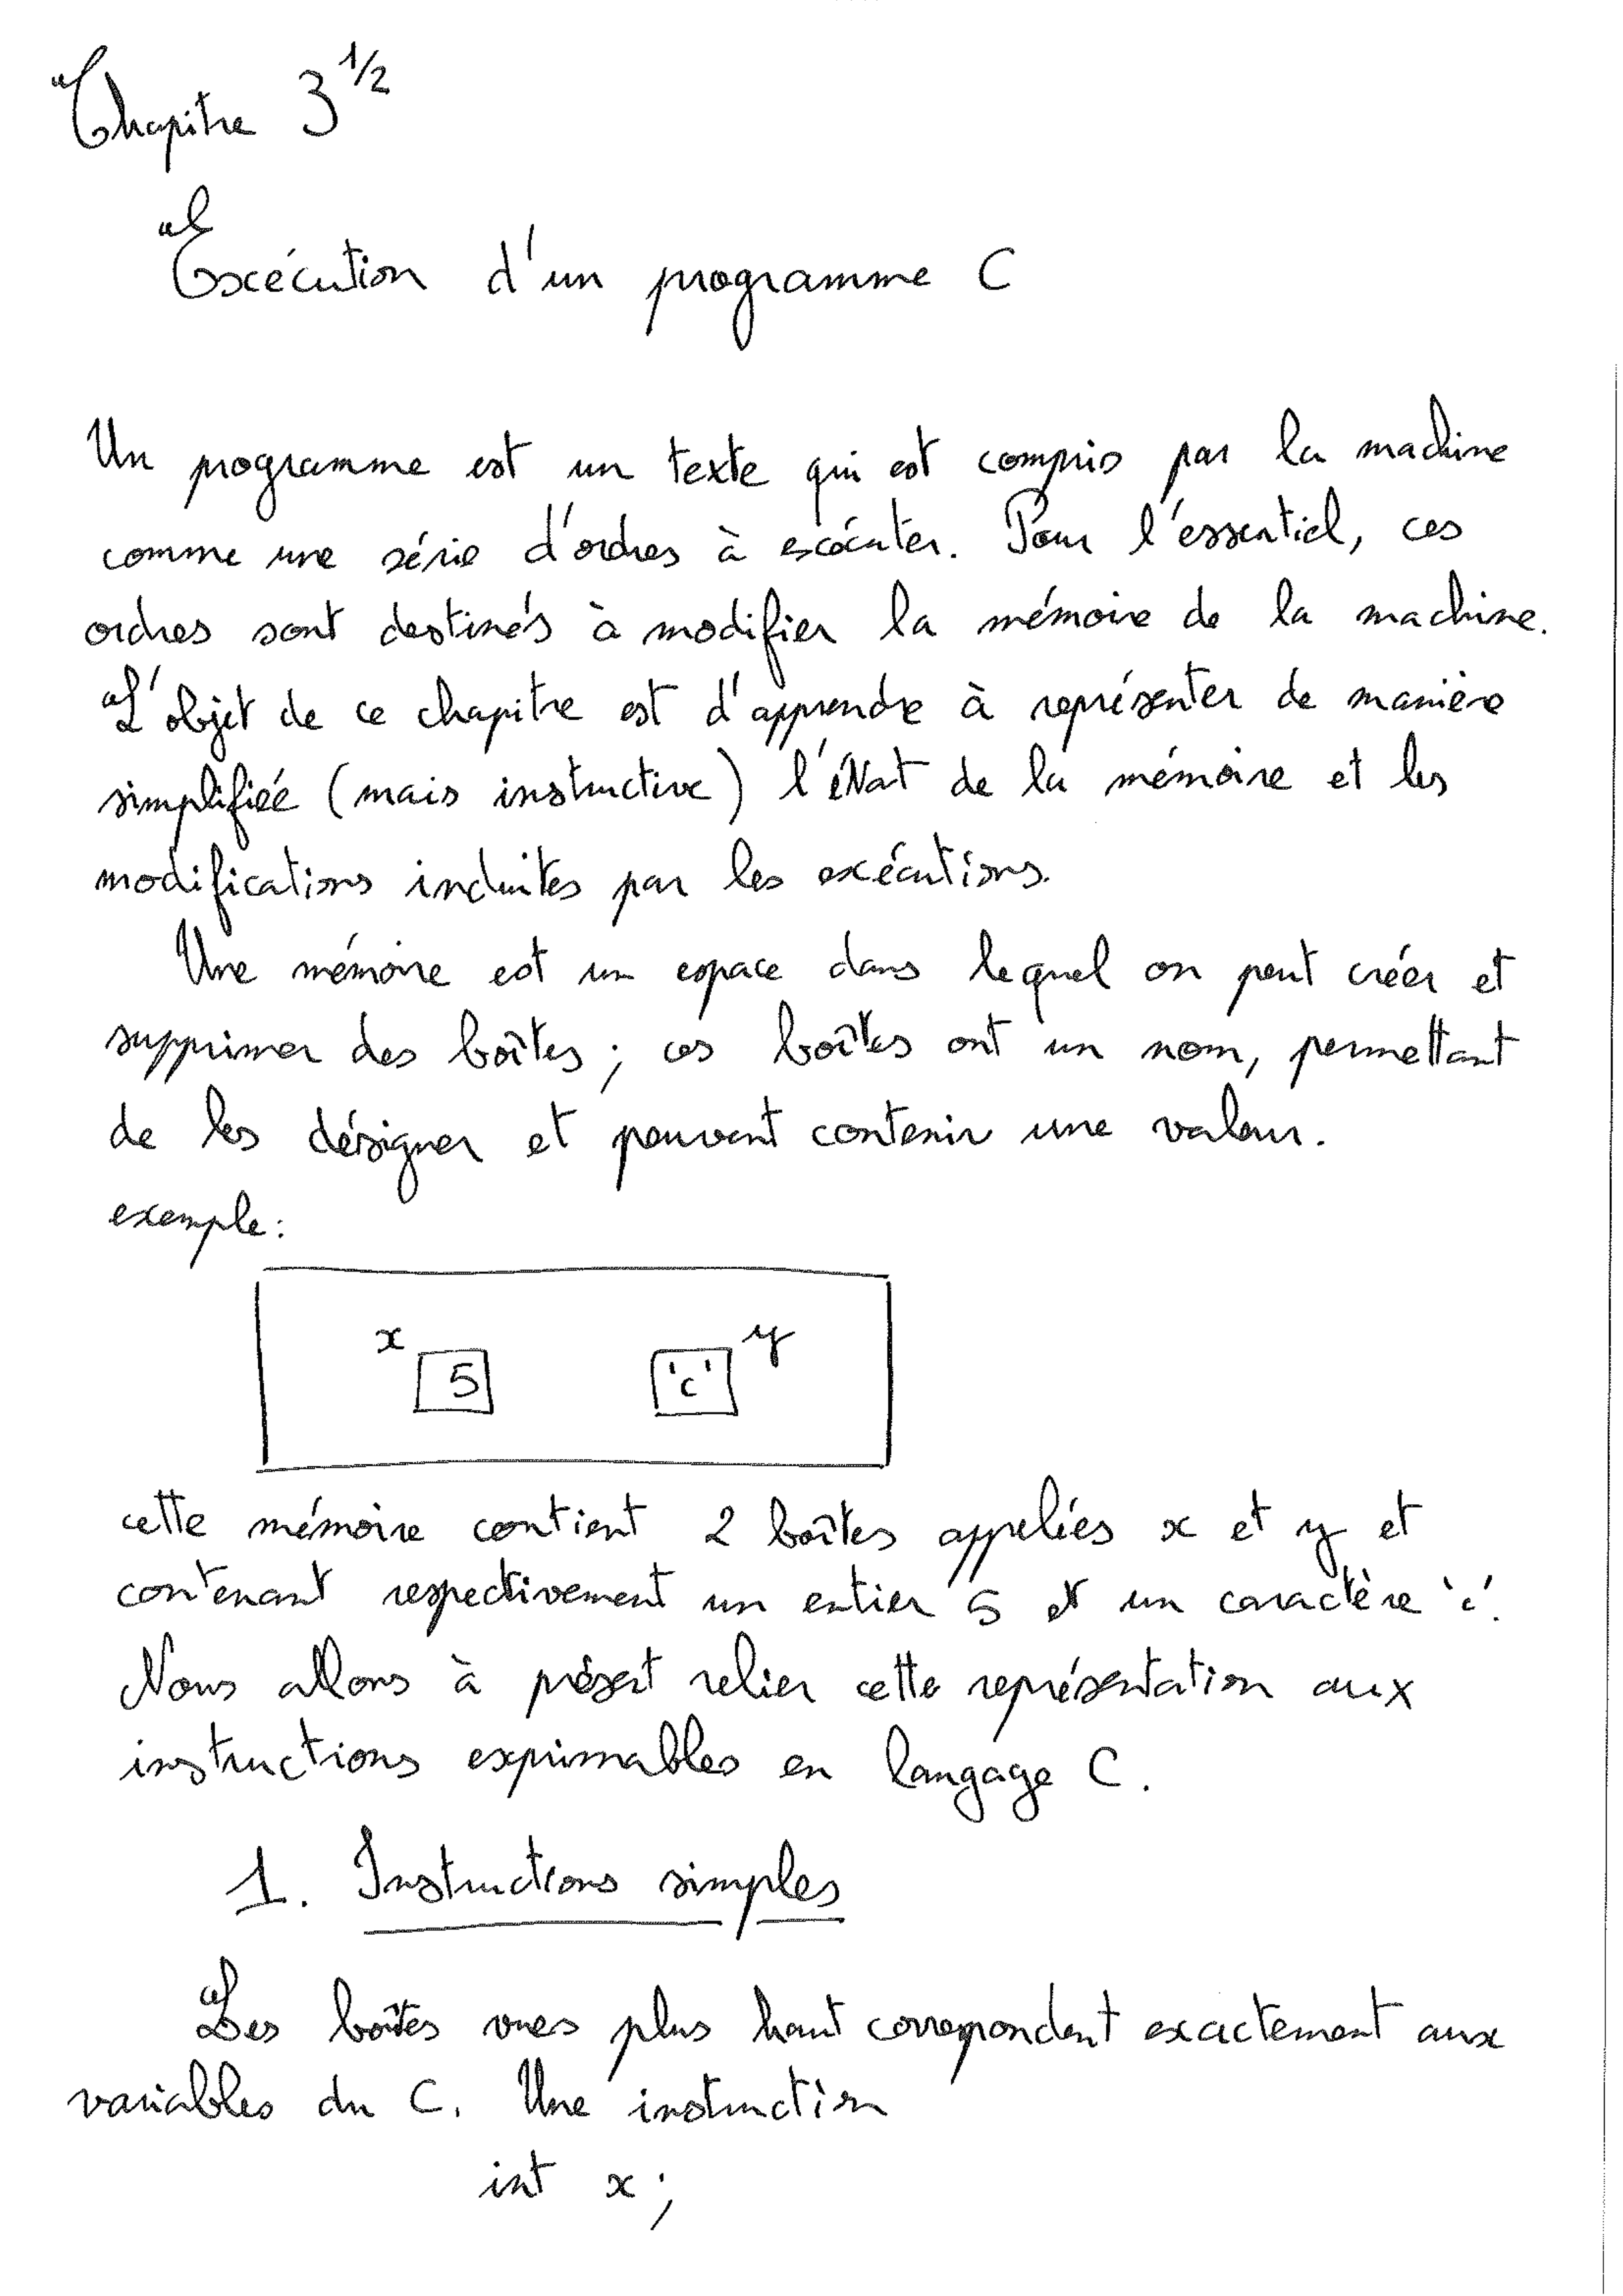 Chapitre 3 1/2
Exécution d'un programme C
Un programme est un texte qui est compris par la machine
comme une série d'ordres à exécuter. Pour l'essentiel, ces
ordres sont destinés à modifier la mémoire de la machine.
L'objet de ce chapitre est d'apprendre à représenter de manière
simplifiée (mais instructive) l'état de la mémoire et les
modifications induites par les exécutions.
Une mémoire est un espace dans lequel on peut créer et
supprimer des boîtes ; ces boîtes ont un nom, permettant
de les désigner et peuvent contenir une valeur.
exemple :
x 5 'c' y
cette mémoire contient 2 boîtes appelées x et y et
contenant respectivement un entier 5 et un caractère 'c'.
Nous allons à présent relier cette représentation aux
instructions exprimables en langage C.
1. Instructions simples
Les boîtes vues plus haut correspondent exactement aux
variables du C. Une instruction
int x ;